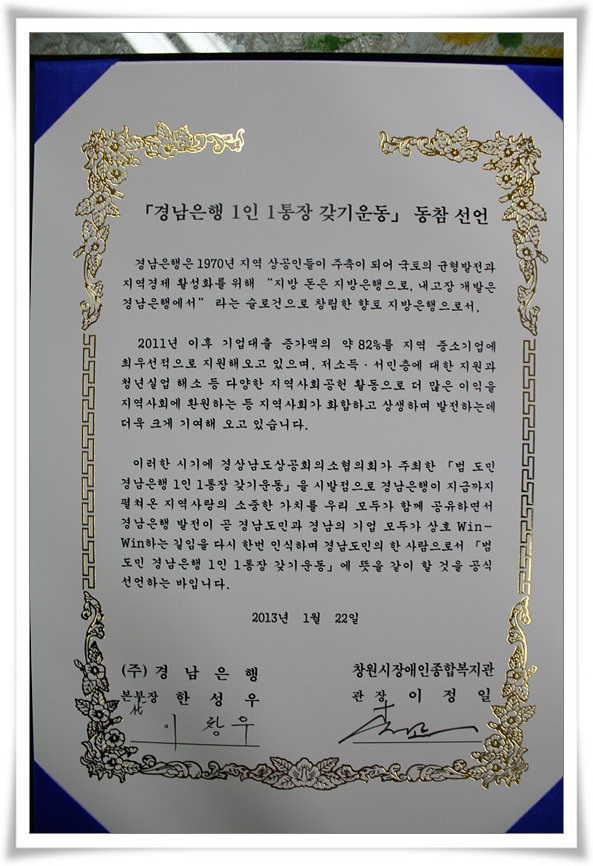 「경남은행 1인 1통장 갖기운동」 동참 선언
경남은행은 1970년 지역 상공인들이 주축이 되어 국토의 균형발전과
지역경제 활성화를 위해 “지방 돈은 지방은행으로, 내고장 개발은
경남은행에서” 라는 슬로건으로 창립한 향토 지방은행으로서,
2011년 이후 기업대출 증가액의 약 82%를 지역 중소기업에
최우선적으로 지원해오고 있으며, 저소득·서민층에 대한 지원과
청년실업 해소 등 다양한 지역사회공헌 활동으로 더 많은 이익을
지역사회에 환원하는 등 지역사회가 화합하고 상생하며 발전하는데
더욱 크게 기여해 오고 있습니다.
이러한 시기에 경상남도상공회의소협의회가 주최한 「범 도민
경남은행 1인 1통장 갖기운동」을 시발점으로 경남은행이 지금까지
펼쳐온 지역사랑의 소중한 가치를 우리 모두가 함께 공유하면서
경남은행 발전이 곧 경남도민과 경남의 기업 모두가 상호 Win-
Win하는 길임을 다시 한번 인식하며 경남도민의 한 사람으로서 「범
도민 경남은행 1인 1통장 갖기운동」에 뜻을 같이 할 것을 공식
선언하는 바입니다.
2013년 1월 22일
(주) 경 남 은 행
본부장 한 성 우
代
이 창 우
창원시장애인종합복지관
관 장 이 정 일